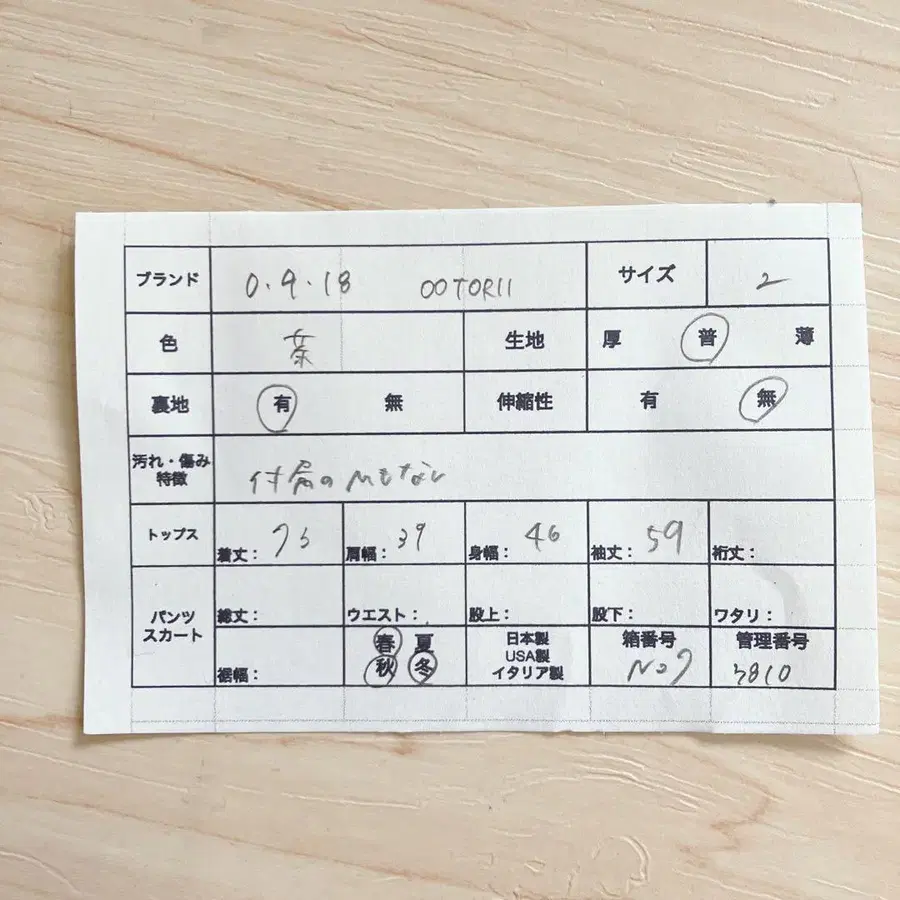 ブランド 0.9.18 OOTORII サイズ 2
色 茶 生地 厚 普 薄
裏地 有 無 伸縮性 有 無
汚れ・傷み
特徴
付属の
トップス 着丈: 75 肩幅: 39 身幅: 46 袖丈: 59 裄丈:
パンツ
スカート
総丈: ウエスト: 股上: 股下: ワタリ:
裾幅:
春 夏
秋 冬
日本製
USA製
イタリア製
箱番号
No7
管理番号
3810